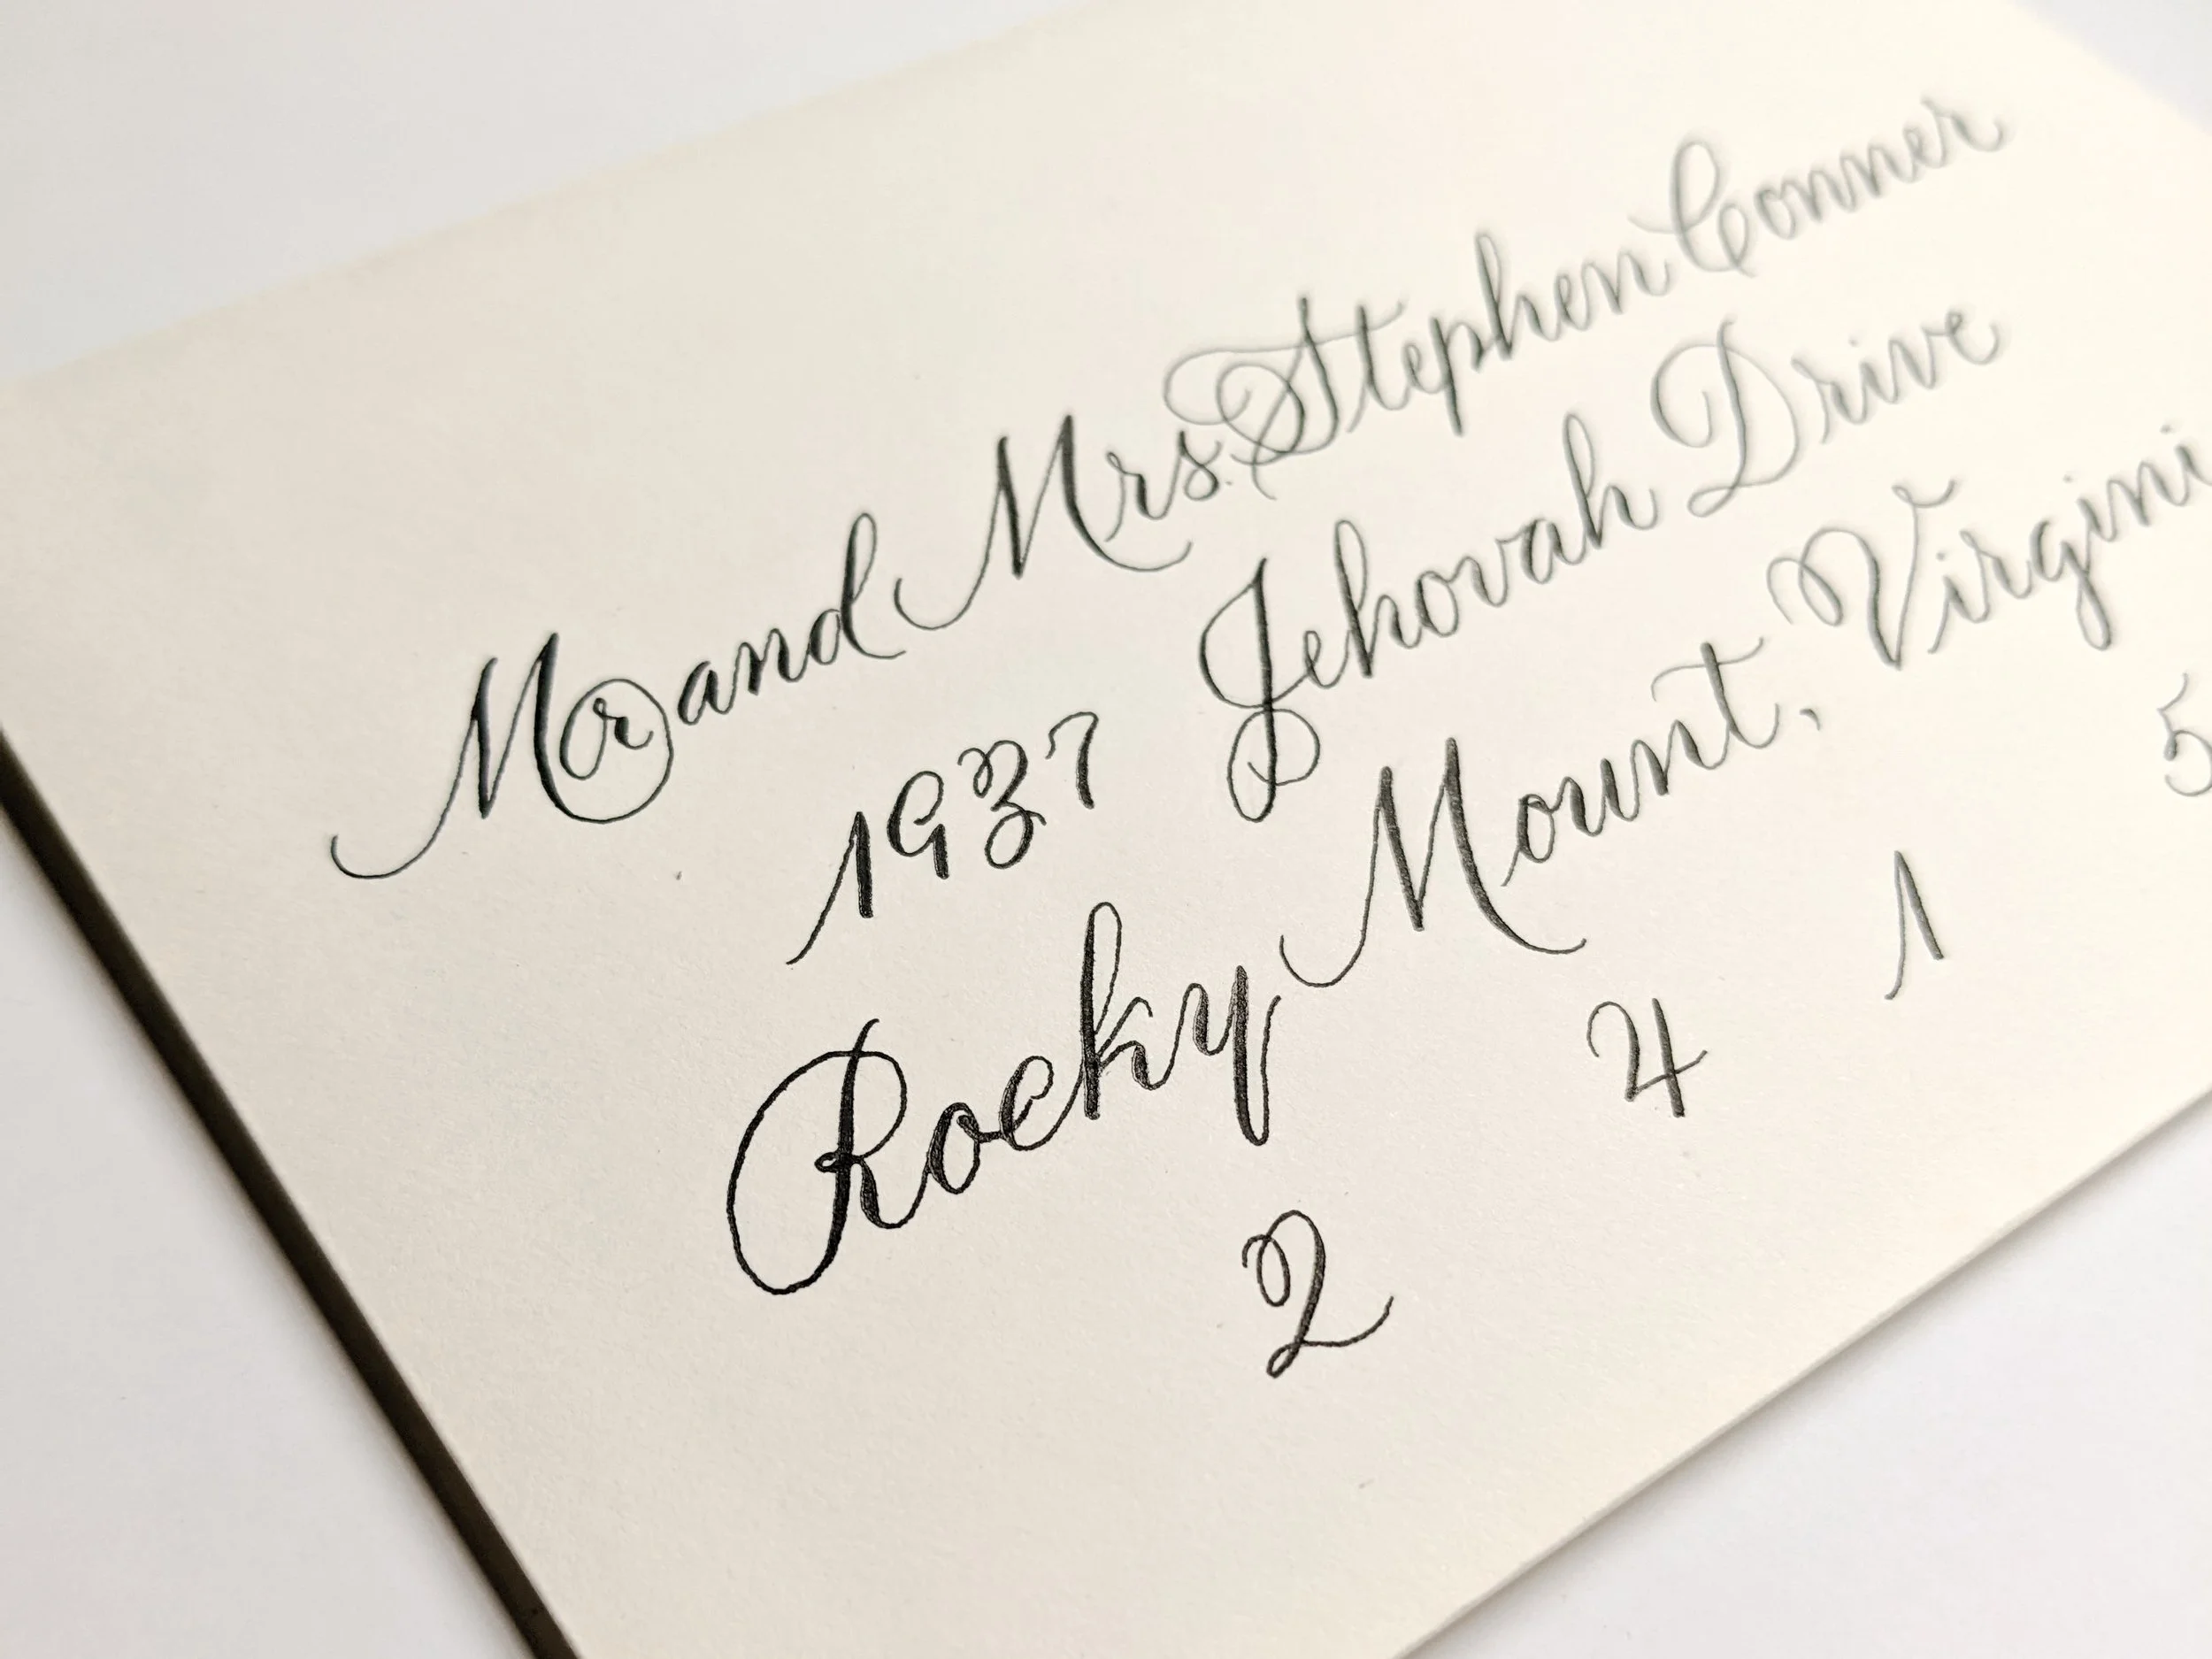 Mr and Mrs. Stephen Conner
1937 Jehovah Drive
Rocky Mount, Virgini
2 4 1 5